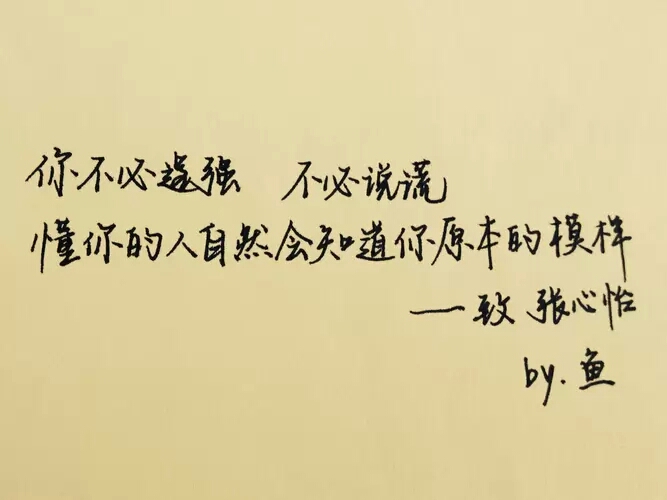 你不必逞强 不必说谎
懂你的人自然会知道你原本的模样
——致 张心怡
by. 鱼